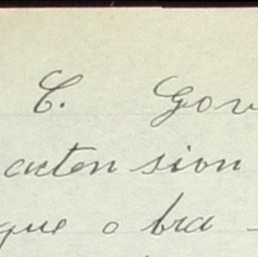 C. Gov
acten sion
que o bra -